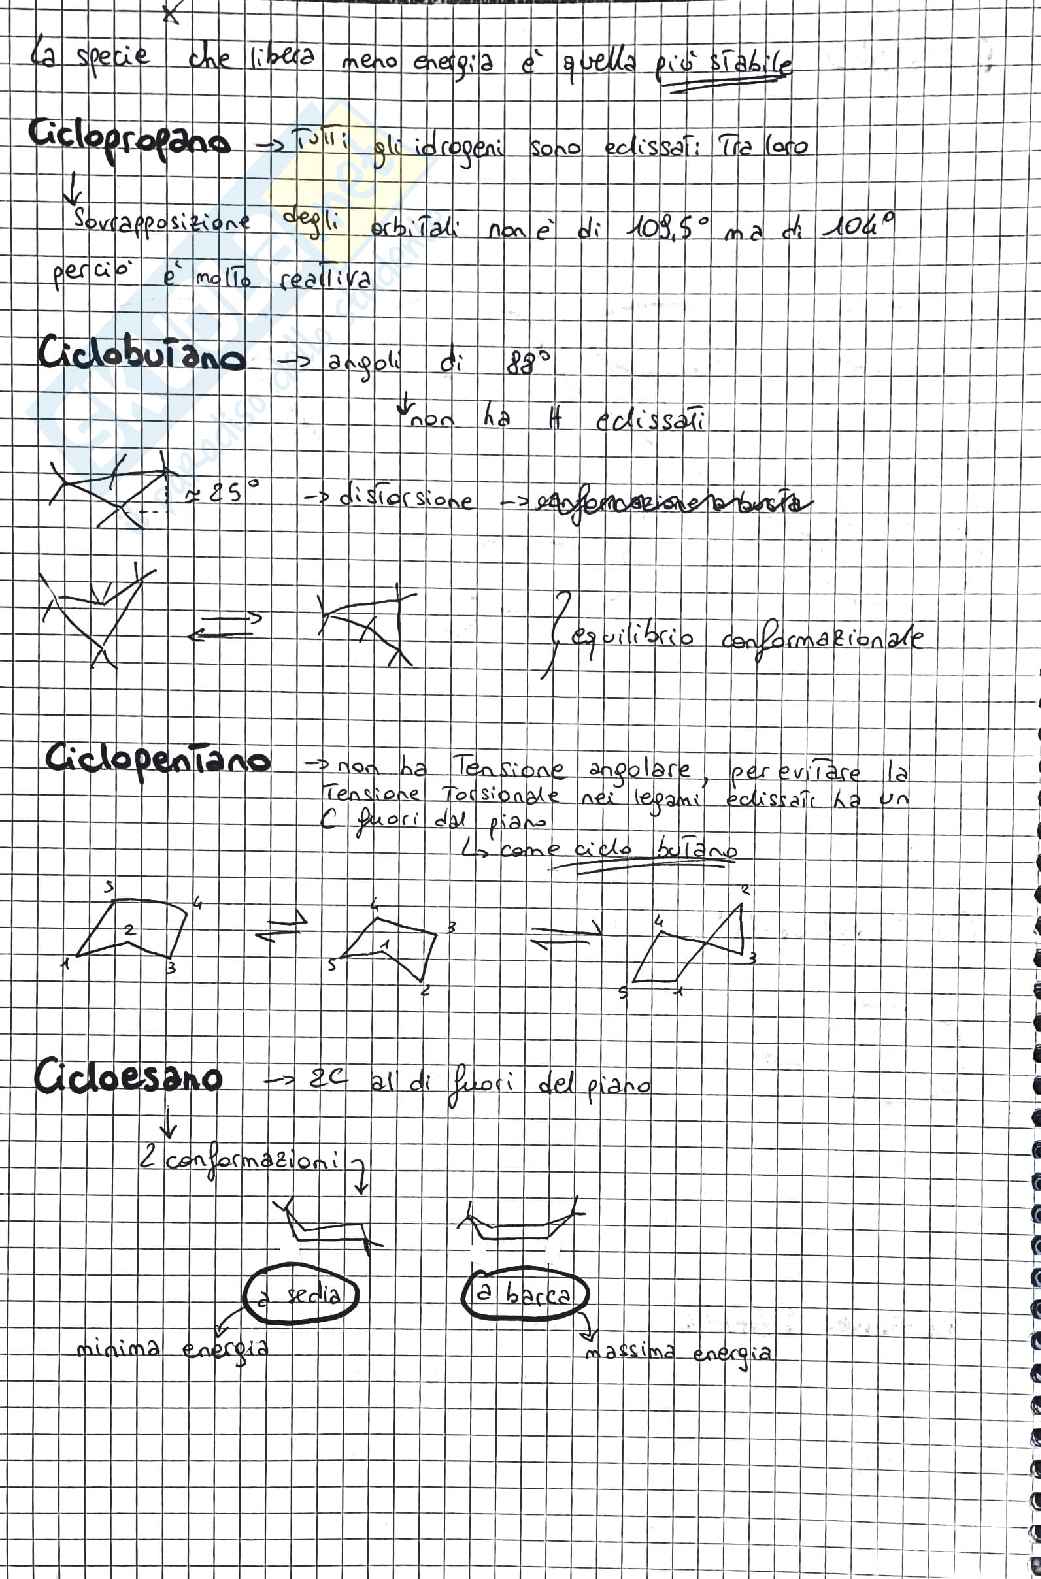 X
La specie che libera meno energia è quella più stabile
Ciclopropano → Tutti gli idrogeni sono eclissati tra loro
↓
Sovrapposizione degli orbitali non è di 109,5° ma di 104°
perciò è molto reattiva
Ciclobutano → angoli di 88°
↓ non ha H eclissati
≈ 25° → distorsione →
⇌ equilibrio conformazionale
Ciclopentano → non ha Tensione angolare, per evitare la
Tensione Torsionale nei legami eclissati ha un
C fuori dal piano
↳ come ciclo butano
5 4 2 1 3 ⇌ 4 3 1 5 2 ⇌ 2 4 3 5 1
Cicloesano → 2C al di fuori del piano
↓
2 conformazioni
a sedia a barca
minima energia massima energia